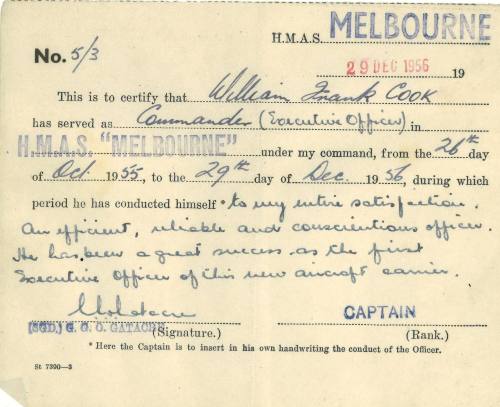 H.M.A.S. MELBOURNE
No. 5/3
29 DEC 1956 19
This is to certify that William Frank COOK
has served as Commander (Executive Officer) in
H.M.A.S. "MELBOURNE" under my command, from the 26th day
of Oct. 1955, to the 29th day of Dec. 1956, during which
period he has conducted himself * to my entire satisfaction.
An efficient, reliable and conscientious officer.
He has been a great success as the first
Executive Officer of this new aircraft carrier.
GGOGatacre CAPTAIN
(SGD.) G. G. O. GATACRE (Signature.) (Rank.)
* Here the Captain is to insert in his own handwriting the conduct of the Officer.
St 7390—3